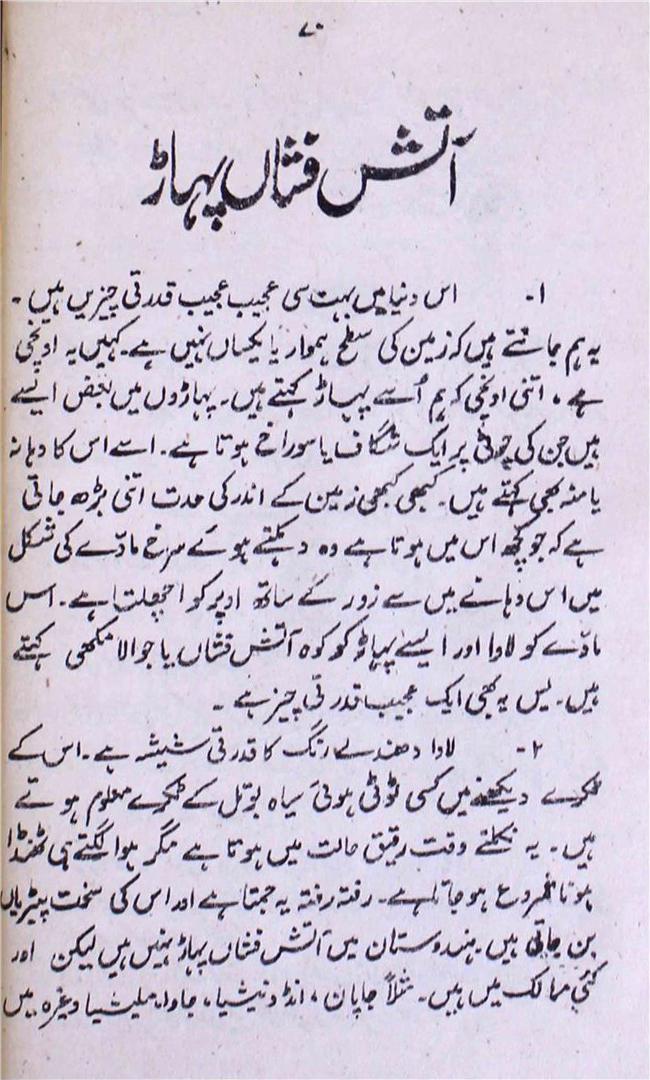 ۷۰
آتش فشاں پہاڑ
۱- اس دنیا میں بہت سی عجیب عجیب قدرتی چیزیں ہیں۔
یہ ہم جانتے ہیں کہ زمین کی سطح ہموار یا یکساں نہیں ہے۔ کہیں یہ اونچی
ہے، اتنی اونچی کہ ہم اُسے پہاڑ کہتے ہیں۔ پہاڑوں میں بعض ایسے
ہیں جن کی چوٹی پر ایک شگاف یا سوراخ ہوتا ہے۔ اسے اس کا دہانہ
یا منہ بھی کہتے ہیں۔ کبھی کبھی زمین کے اندر کی حدت اتنی بڑھ جاتی
ہے کہ جو کچھ اس میں ہوتا ہے وہ دہکتے ہوئے سرخ مادّے کی شکل
میں اس دہانے میں سے زور کے ساتھ اوپر کو اچھلتا ہے۔ اس
مادّے کو لاوا اور ایسے پہاڑ کو کوہ آتش فشاں یا جوالا مکھی کہتے
ہیں۔ پس یہ بھی ایک عجیب قدرتی چیز ہے۔
۲- لاوا دھندلے رنگ کا قدرتی شیشہ ہے۔ اس کے
ٹکڑے دیکھنے میں کسی ٹوٹی ہوئی سیاہ بوتل کے ٹکڑے معلوم ہوتے
ہیں۔ یہ نکلتے وقت رقیق حالت میں ہوتا ہے مگر ہوا لگتے ہی ٹھنڈا
ہونا شروع ہو جاتا ہے۔ رفتہ رفتہ یہ جمتا ہے اور اس کی سخت پپڑیاں
بن جاتی ہیں۔ ہندوستان میں آتش فشاں پہاڑ نہیں ہیں لیکن اور
کئی ممالک میں ہیں۔ مثلاً جاپان، انڈونیشیا، جاوا، ملیشیا وغیرہ میں